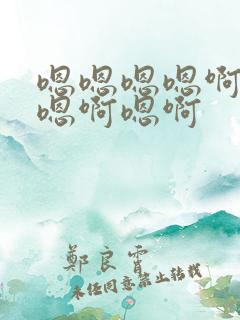 嗯嗯嗯嗯啊
嗯啊嗯啊
鄭良霄
未经同意禁止转载